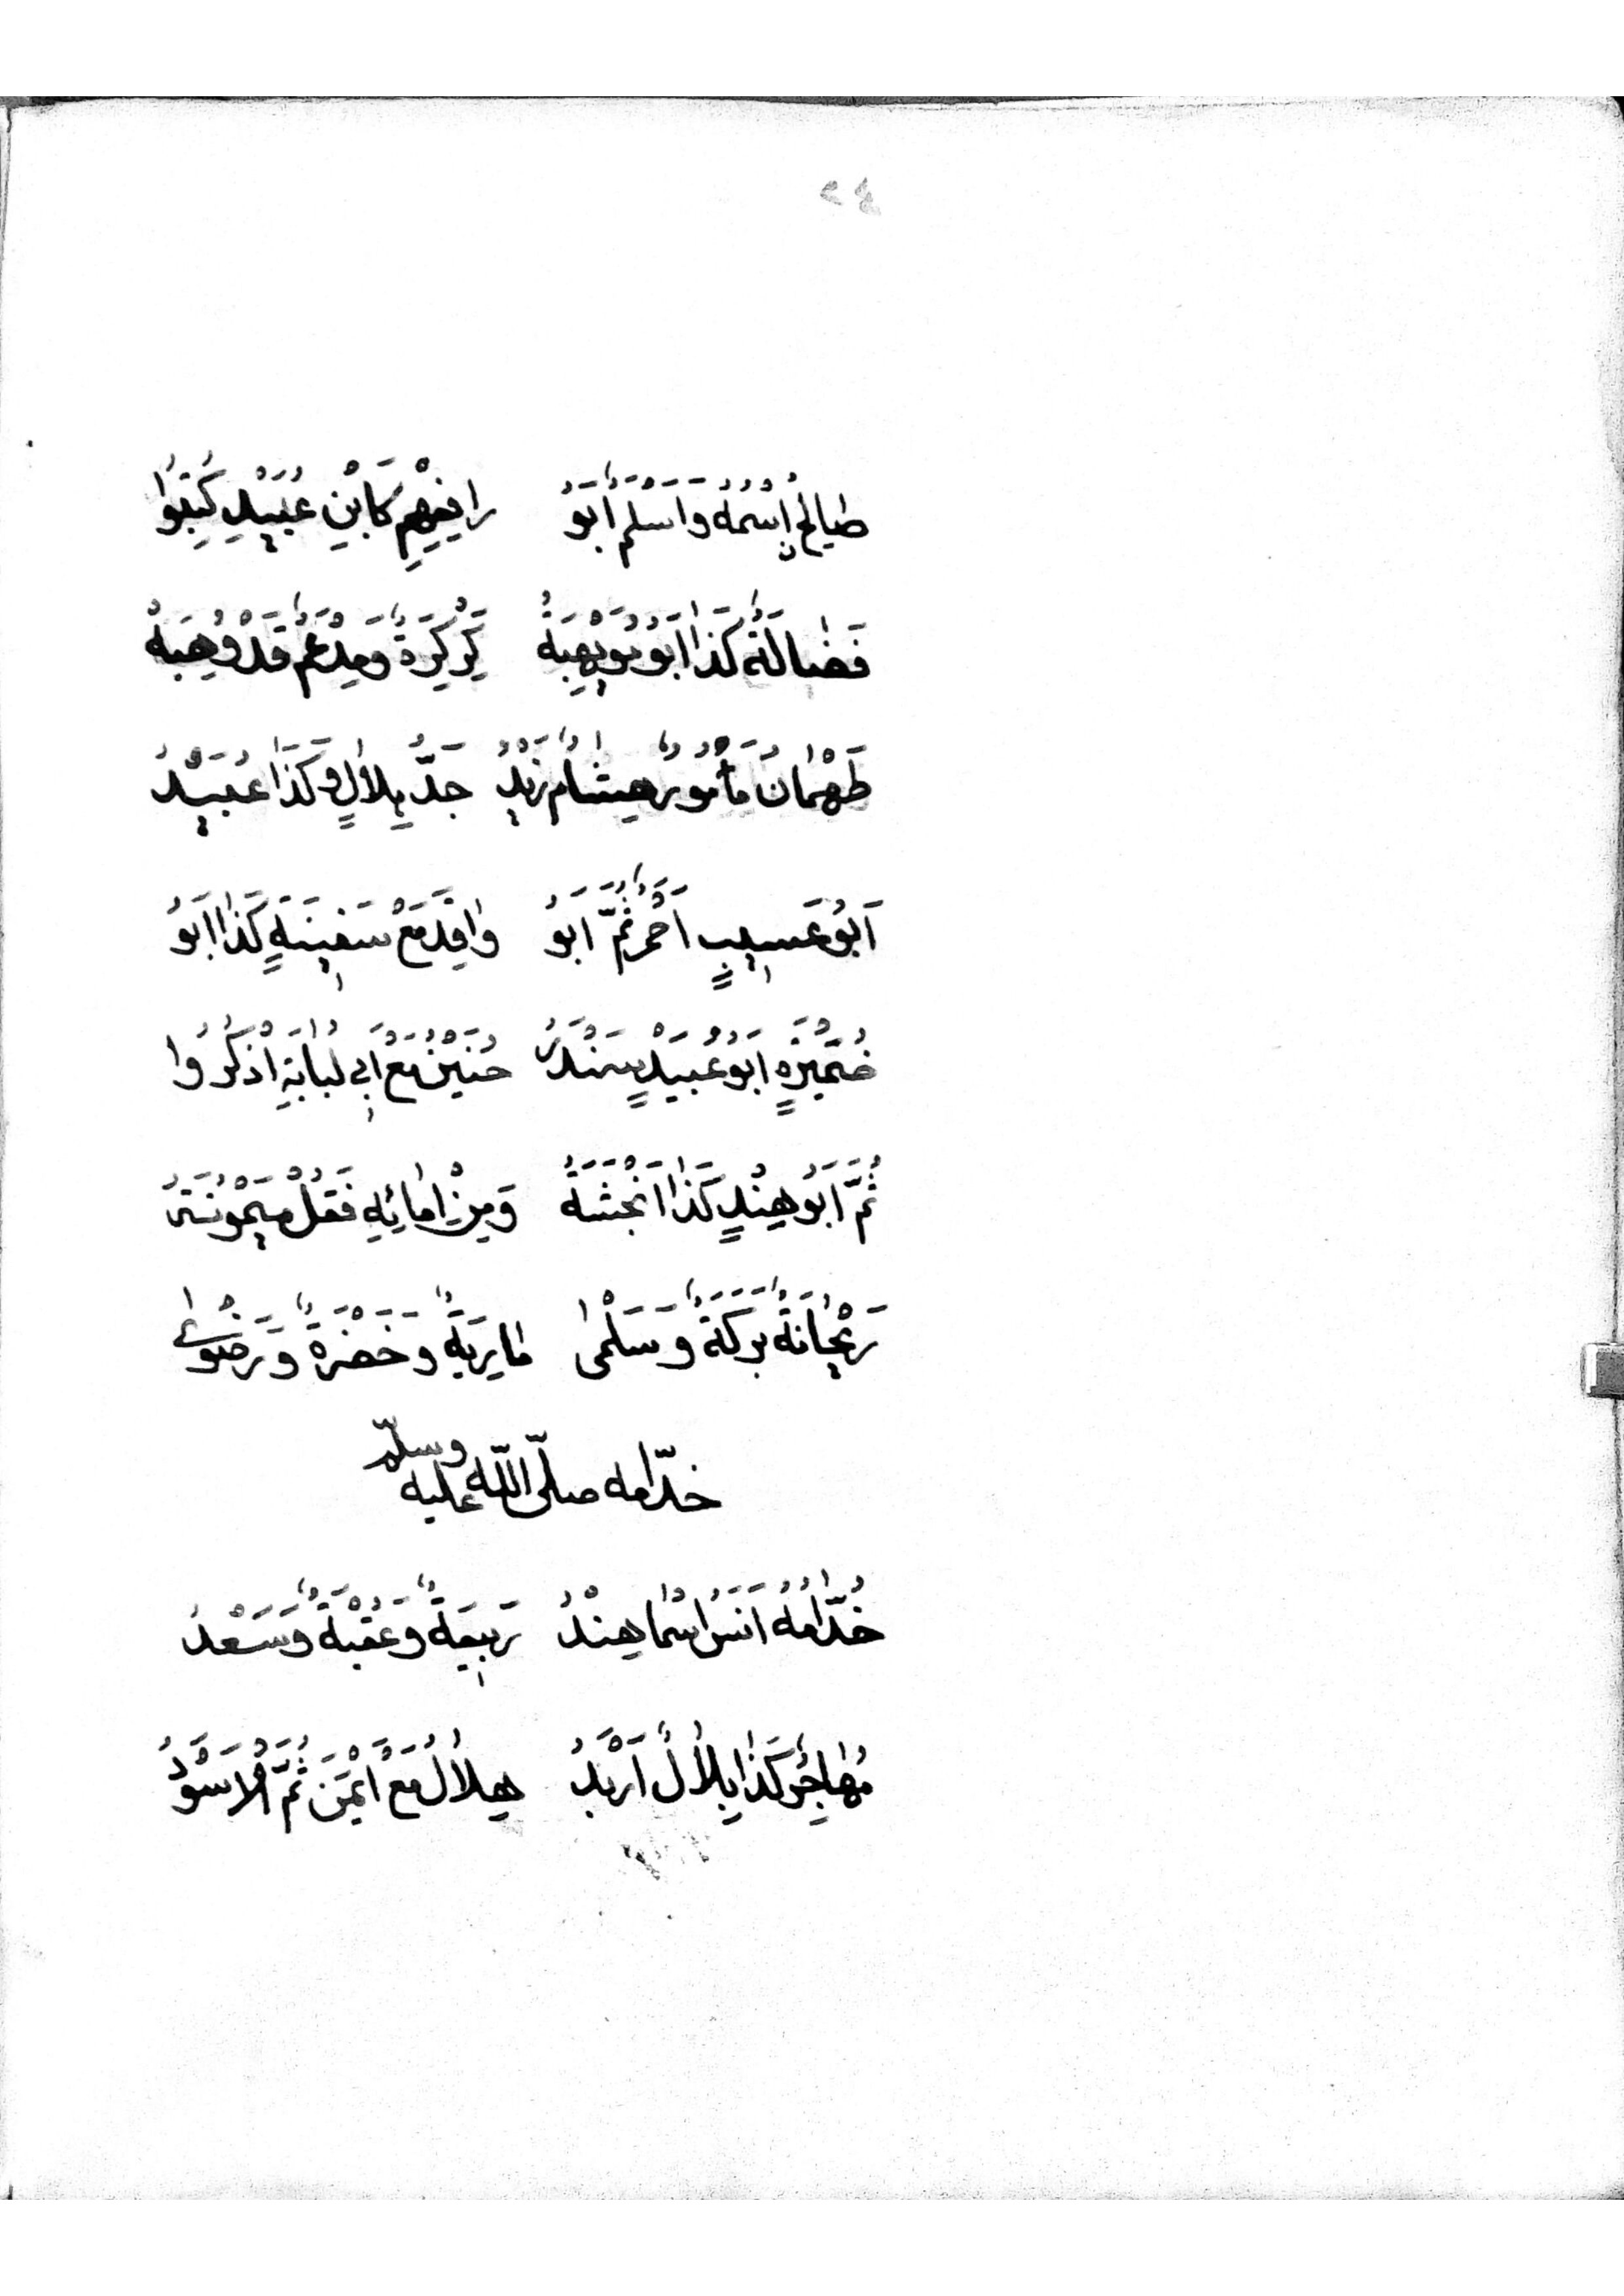 ٢٤
طِالِحُ اِسْمُهُ وَاَسْلَمُ اَبُو رَافِعِهِمْ كَابْنِ عُبَيْدٍ كُتِبُوا
فَضَالَةٌ كَذَا اَبُو مُوَيْهِبَةُ كِرْكِرَةٌ وَمِدْعَمٌ قَدْ وُهِبَهْ
طَهْمَانَ مَأْبُورٌ هِشَامٌ زَيْدُ جَدُّ بِلَالٍ وَكَذَا عُبَيْدُ
اَبُو عَسِيبٍ اَحْمَرُ ثُمَّ اَبُو وَاقِدَ مَعْ سَفِينَةٍ كَذَا اَبُو
ضُمَيْرَةٍ اَبُو عُبَيْدٍ سَنْدَرُ حُنَيْنُ مَعْ اَبِي لُبَابَةِ اذْكُرُوا
ثُمَّ اَبُو هِنْدٍ كَذَا اَنْجَشَةُ وَمِنْ اِمَائِهِ فَقُلْ مَيْمُونَةُ
رَيْحَانَةٌ بَرَكَةٌ وَسَلْمَى مَارِيَةٌ وَخَضْرَةٌ وَرَضْوَى
خدّامه صلّى اللّه عليه وسلّم
خُدَّامُهُ اَنَسُ اَسْمَا هِنْدُ رَبِيعَةٌ وَعُقْبَةٌ وَسَعْدُ
مُهَاجِرٌ كَذَا بِلَالٌ اَرْبَدُ هِلَالُ مَعْ اَيْمَنَ ثُمَّ الْاَسْوَدُ